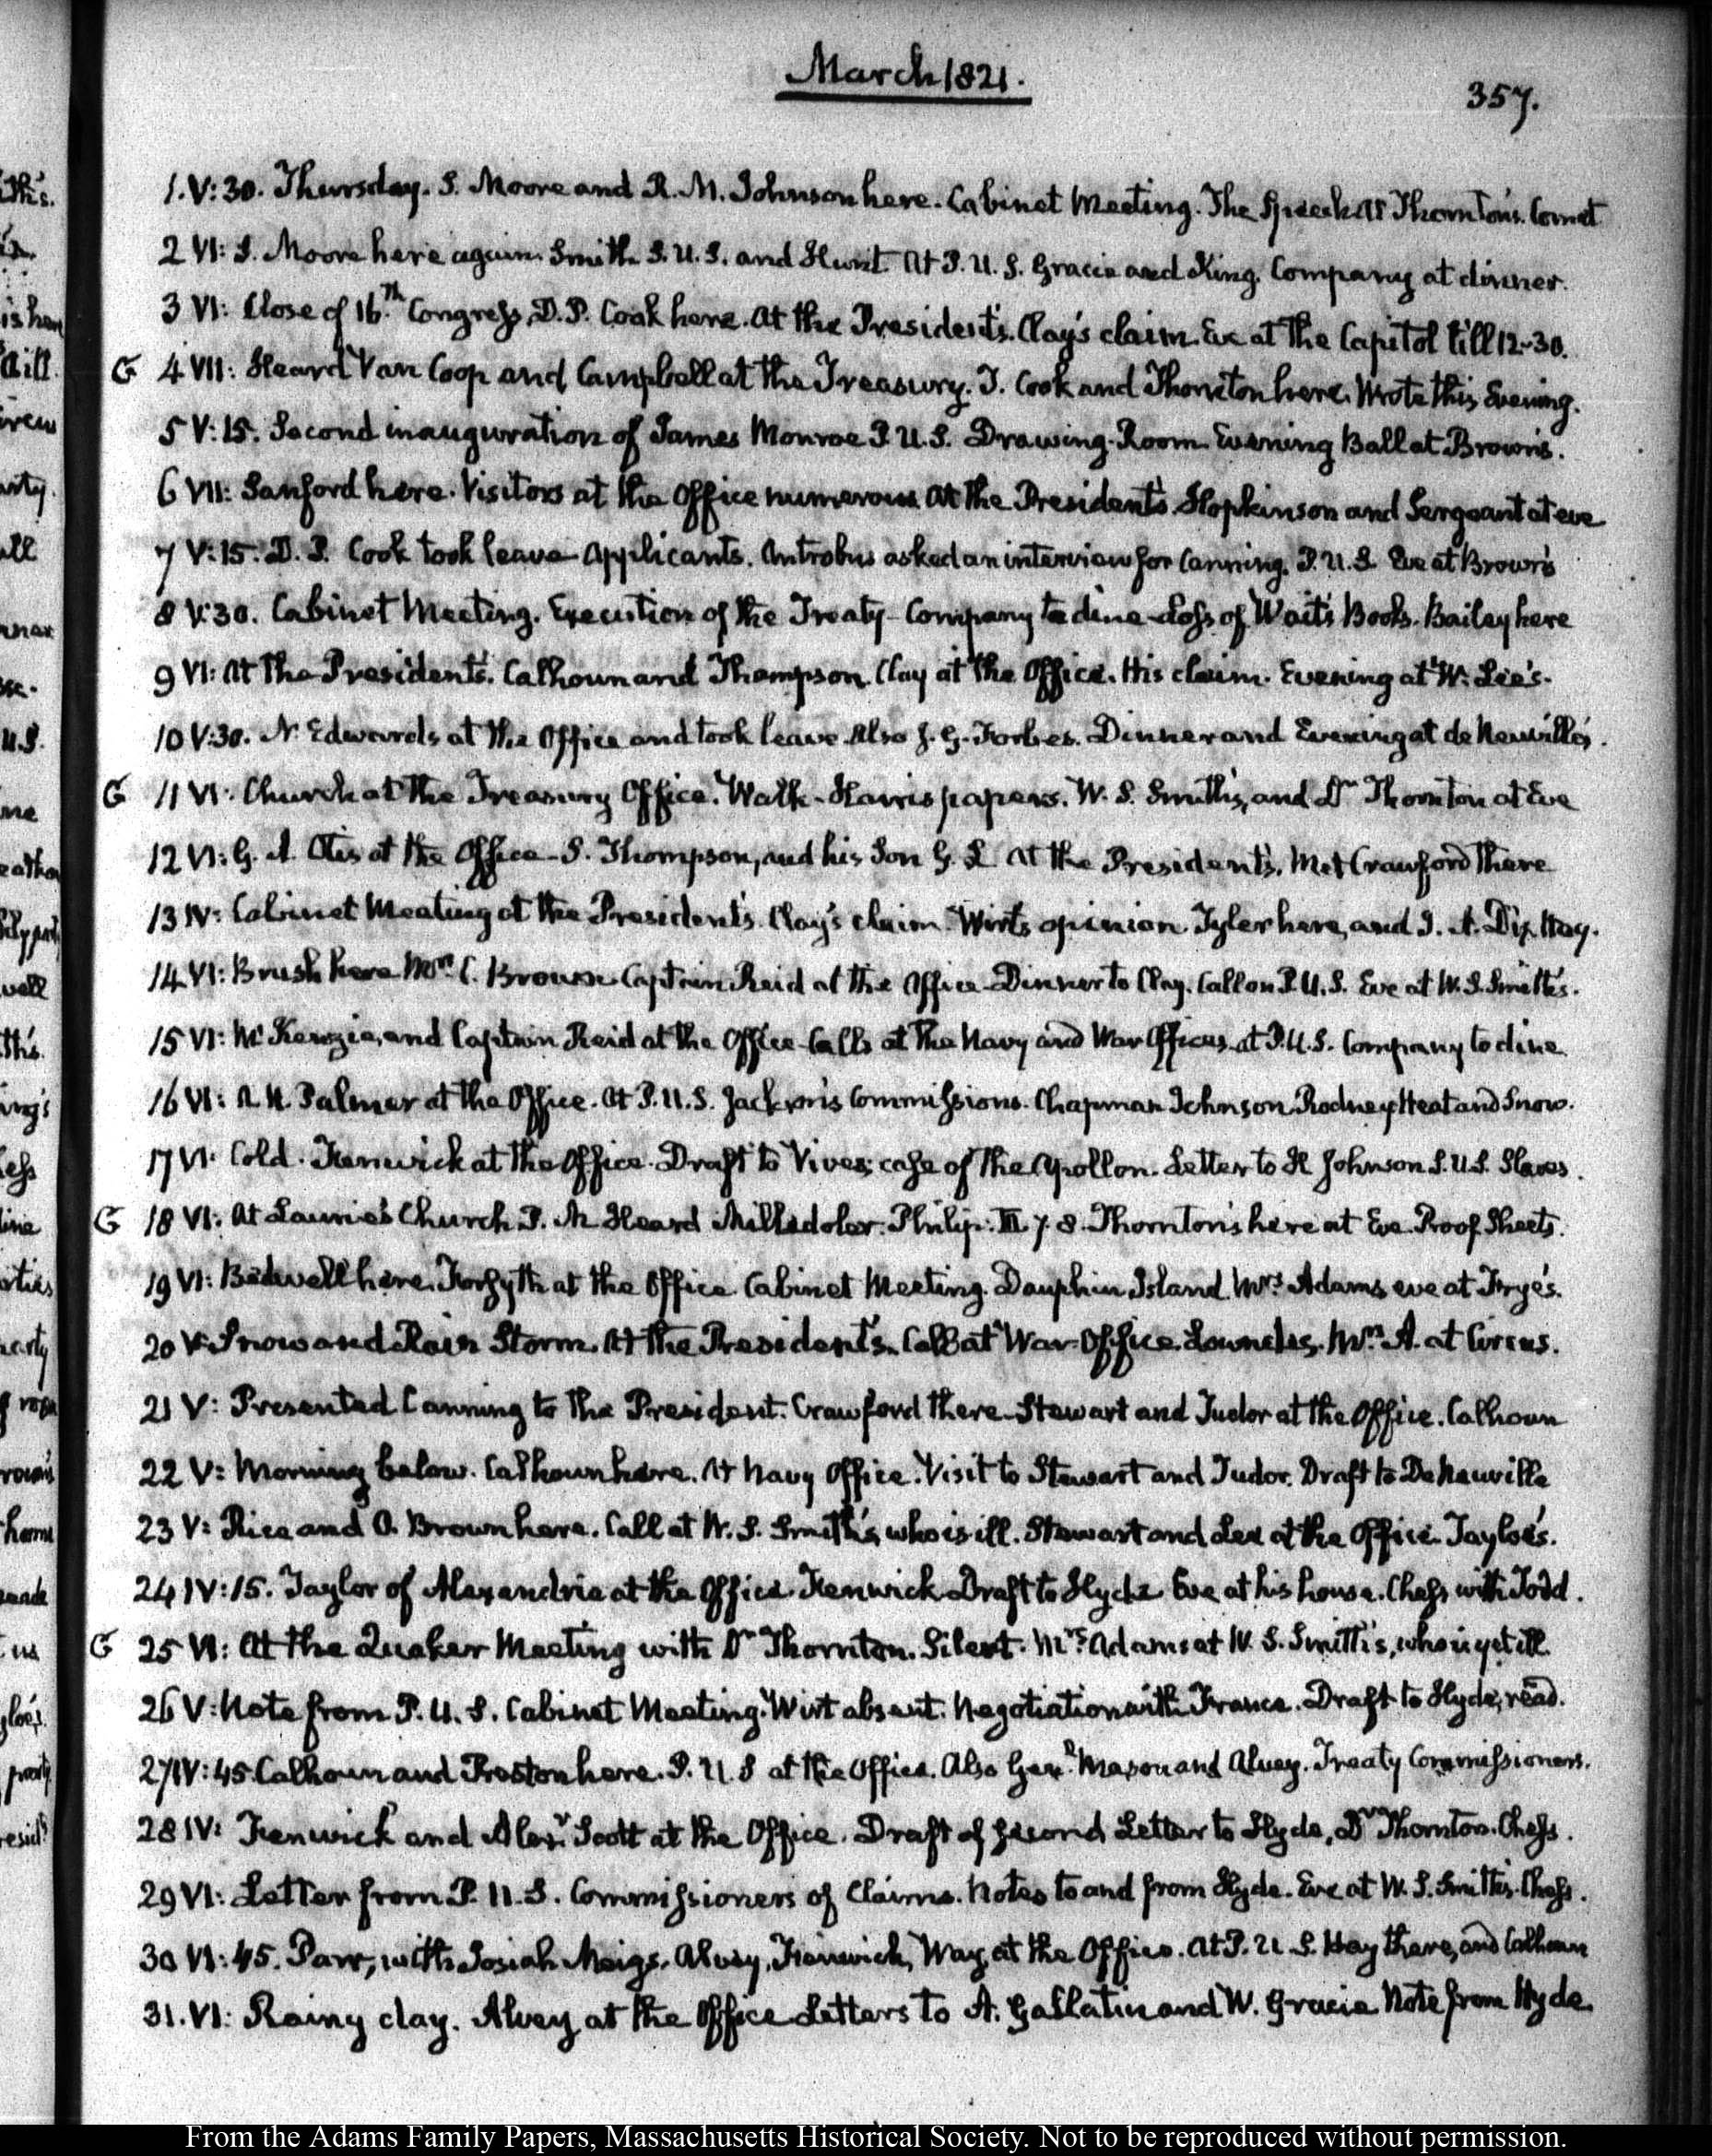 March 1821.
357.
1. V:30. Thursday. S. Moore and R. M. Johnson here. Cabinet Meeting. The Speech at Thornton's. Comet
2 VI: S. Moore here again. Smith S.U.S. and Hunt. At P.U.S. Gracie and King. Company at dinner.
3 VI: Close of 16.th Congress, D. P. Cook here. At the President's. Clay's claim. Eve at the Capitol till 12-30.
G 4 VII: Heard Van Coop and Campbell at the Treasury. J. Cook and Thornton here. Wrote this Evening.
5 V:15. Second inauguration of James Monroe P.U.S. Drawing-Room. Evening Ball at Brown's.
6 VII: Sanford here. Visitors at the Office numerous. At the President's. Hopkinson and Sergeant at eve
7 V:15. D. P. Cook took leave. Applicants. Antrobus asked an interview for Canning. P.U.S. Eve at Brown's
8 V:30. Cabinet Meeting. Execution of the Treaty. Company to dine. Loss of Wait's Books. Bailey here
9 VI: At the President's. Calhoun and Thompson. Clay at the Office. His claim. Evening at W. Lee's.
10 V:30. N. Edwards at the Office and took leave. Also J. G. Forbes. Dinner and Evening at de Neuville's.
G 11 VI: Church at the Treasury Office. Walk. Harris papers. W. S. Smith's, and Dr Thornton at Eve
12 VI: G. A. Otis at the Office. S. Thompson, and his Son G. L. At the President's. Met Crawford there
13 IV: Cabinet Meeting at the President's. Clay's claim. Wirt's opinion. Tyler here, and J. A. Dix. Hay.
14 VI: Brush here. Mrs. C. Brown. Captain Reid at the Office. Dinner to Clay. Call on P.U.S. Eve at W. S. Smith's.
15 VI: McKenzie, and Captain Reid at the Office. Calls at the Navy and War Offices. at P.U.S. Company to dine
16 VI: A. H. Palmer at the Office. At P.U.S. Jackson's Commissions. Chapman Johnson. Rodney. Heat and Snow.
17 VI. Cold. Fenwick at the Office. Draft to Vives; case of the Apollon. Letter to H Johnson S.U.S. Slaves.
G 18 VI: At Laurie's Church P. M. Heard Milledoler. Philip: III. 7. 8. Thornton's here at Eve. Proof Sheets.
19 VI: Bidwell here. Forsyth at the Office. Cabinet Meeting. Dauphin Island. Mrs. Adams eve at Frye's.
20 V: Snow and Rain Storm. At the President's. Call at War-Office. Lowndes. Mrs. A. at Circus.
21 V: Presented Canning to the President. Crawford there. Stewart and Tudor at the Office. Calhoun
22 V: Morning below. Calhoun here. At Navy Office. Visit to Stewart and Tudor. Draft to De Neuville
23 V: Rice and O. Brown here. Call at W. S. Smith's, who is ill. Stewart and Lee at the Office. Tayloe's.
24 IV:15. Taylor of Alexandria at the Office. Fenwick. Draft to Hyde. Eve at his house. Chess with Todd.
G 25 VI: At the Quaker Meeting with Dr Thornton. Silent. Mrs. Adams at W. S. Smith's, who is yet ill
26 V: Note from P.U.S. Cabinet Meeting. Wirt absent. Negotiation with France. Draft to Hyde, read.
27 IV:45 Calhoun and Preston here. P.U.S at the Office. Also Genl. Mason and Alvey. Treaty Commissioners.
28 IV: Fenwick and Alexr. Scott at the Office. Draft of second Letter to Hyde, Dr Thornton. Chess.
29 VI: Letter from P.U.S. Commissioners of Claims. Notes to and from Hyde. Eve at W. S. Smith's. Chess.
30 VI:45. Parr, with Josiah Meigs. Alvey, Fenwick, Way, at the Office. At P.U.S. Hay there, and Calhoun
31. VI: Rainy day. Alvey at the Office. Letters to A. Gallatin and W. Gracie. Note from Hyde.
From the Adams Family Papers, Massachusetts Historical Society. Not to be reproduced without permission.